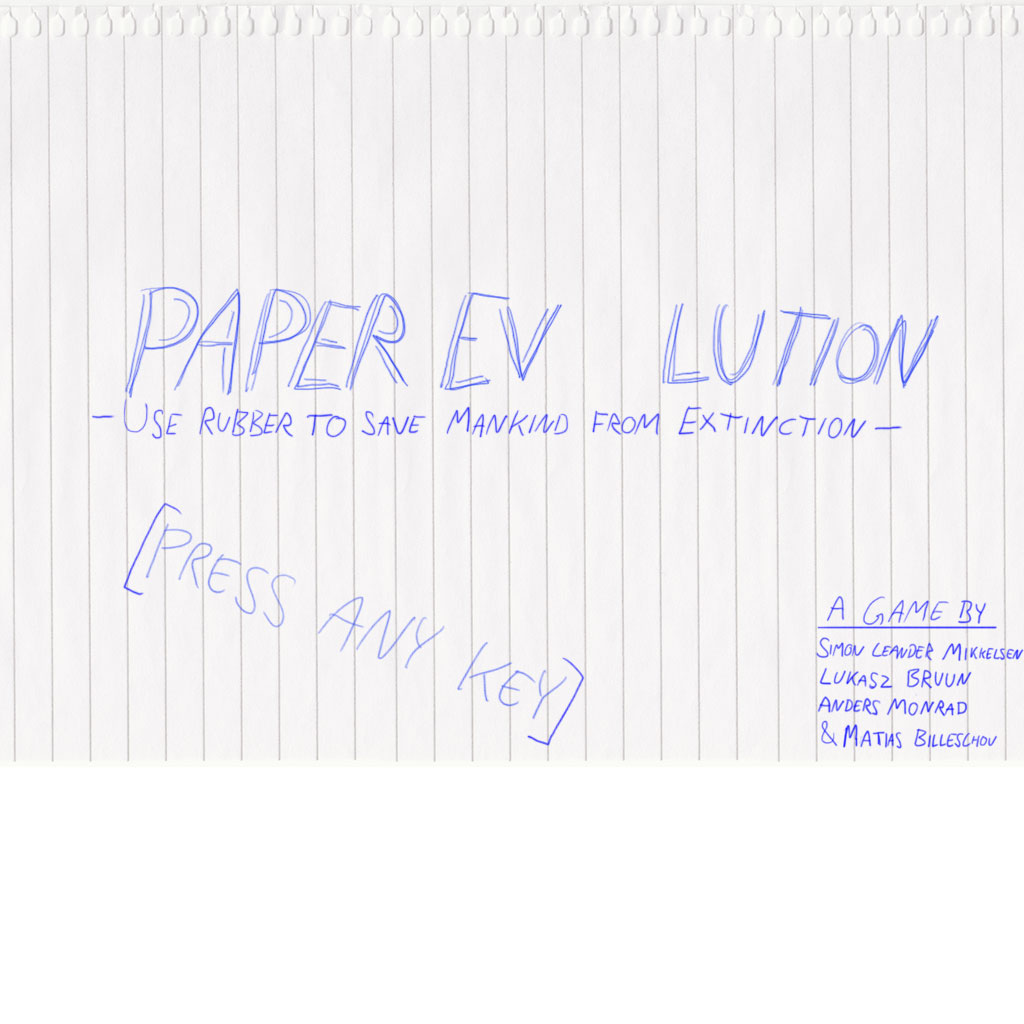 PAPER EV LUTION
- USE RUBBER TO SAVE MANKIND FROM EXTINCTION -
[PRESS ANY KEY]
A GAME BY
SIMON LEANDER MIKKELSEN
LUKASZ BRUUN
ANDERS MONRAD
& MATIAS BILLESCHOU